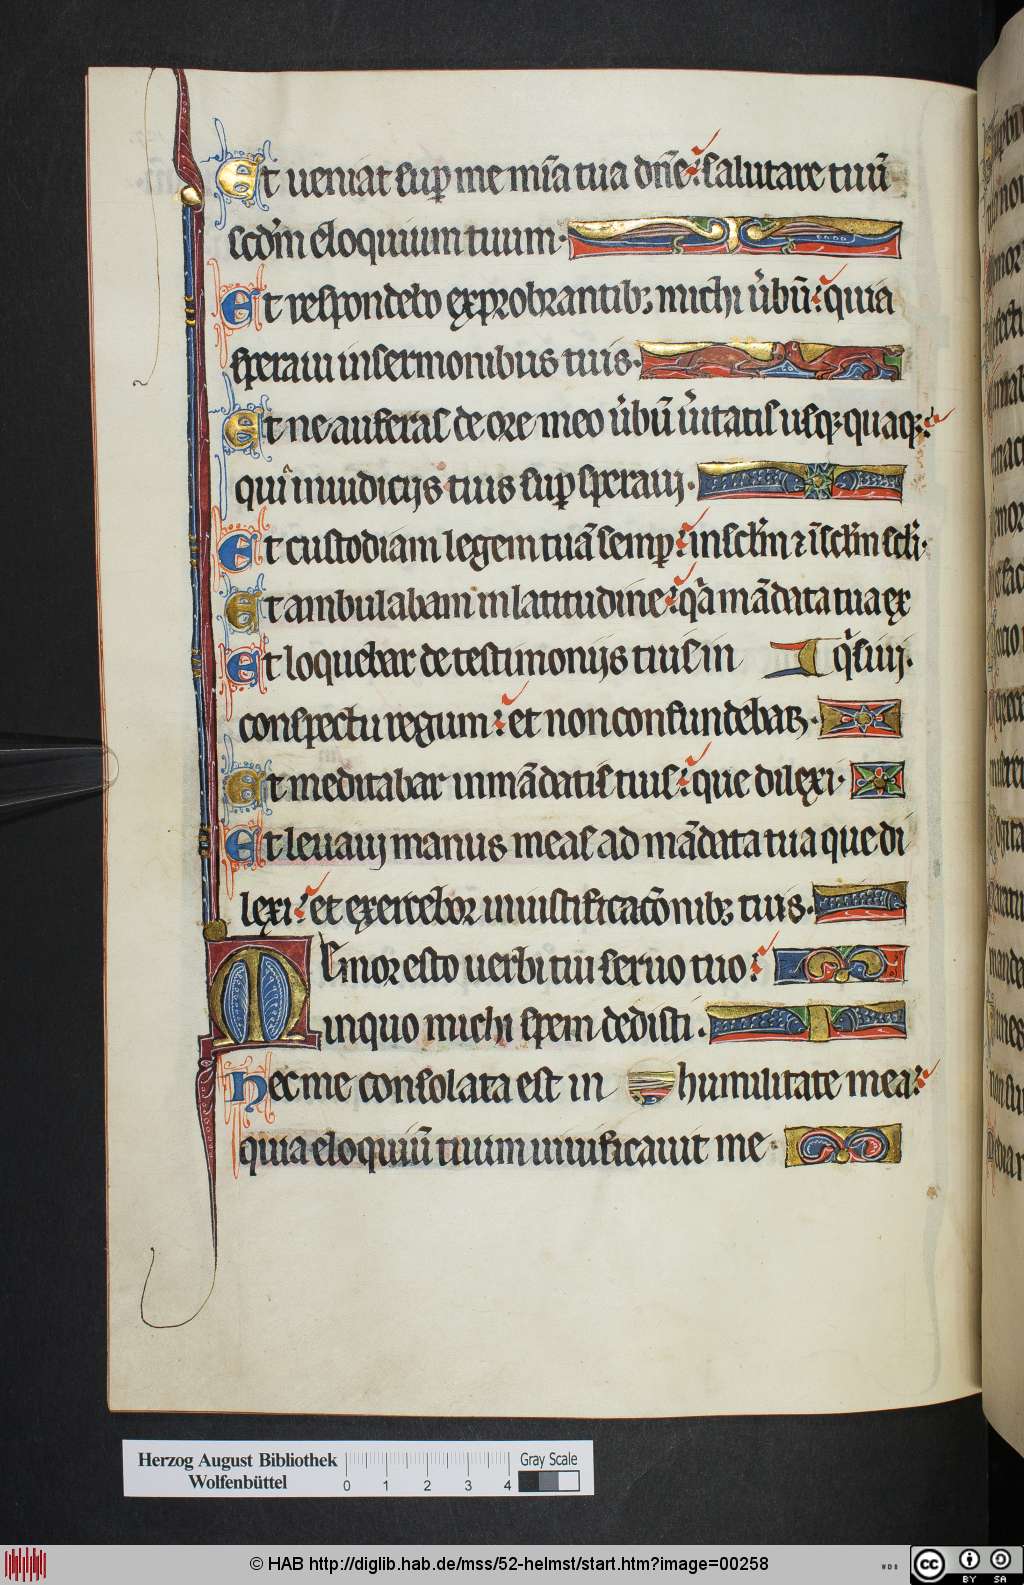 Et ueniat sup̱ me mīa tua dn̄e: salutare tuū
scd̓m eloquium tuum.
Et respondebo exprobrantibꝫ michi u̓bū: quia
speraui in sermonibus tuis.
Et ne auferas de ore meo u̓bū u̓itatis usqꝫ quaqꝫ:
quı̓ in iudicijs tuis sup̱ speraui.
Et custodiam legem tuā semp̱: in sc̄lm ⁊ ī sc̄lm sc̄li.
Et ambulabam in latitudine: qͣ mādata tua ex
q̓siui.
Et loquebar de testimonijs tuis in
conspectu regum: et non confundebar.
Et meditabar in mādatis tuis: que dilexi.
Et leuaui manus meas ad mādata tua que di
lexi: et exercebor in iustificac̄onibꝫ tuis.
MEmor esto uerbi tui seruo tuo:
in quo michi spem dedisti.
Hec me consolata est in humilitate mea:
quia eloquiū tuum uiuificauit me.
Herzog August Bibliothek
Wolfenbüttel
0 1 2 3 4
Gray Scale
© HAB http://diglib.hab.de/mss/52-helmst/start.htm?image=00258
WDB
cc BY SA